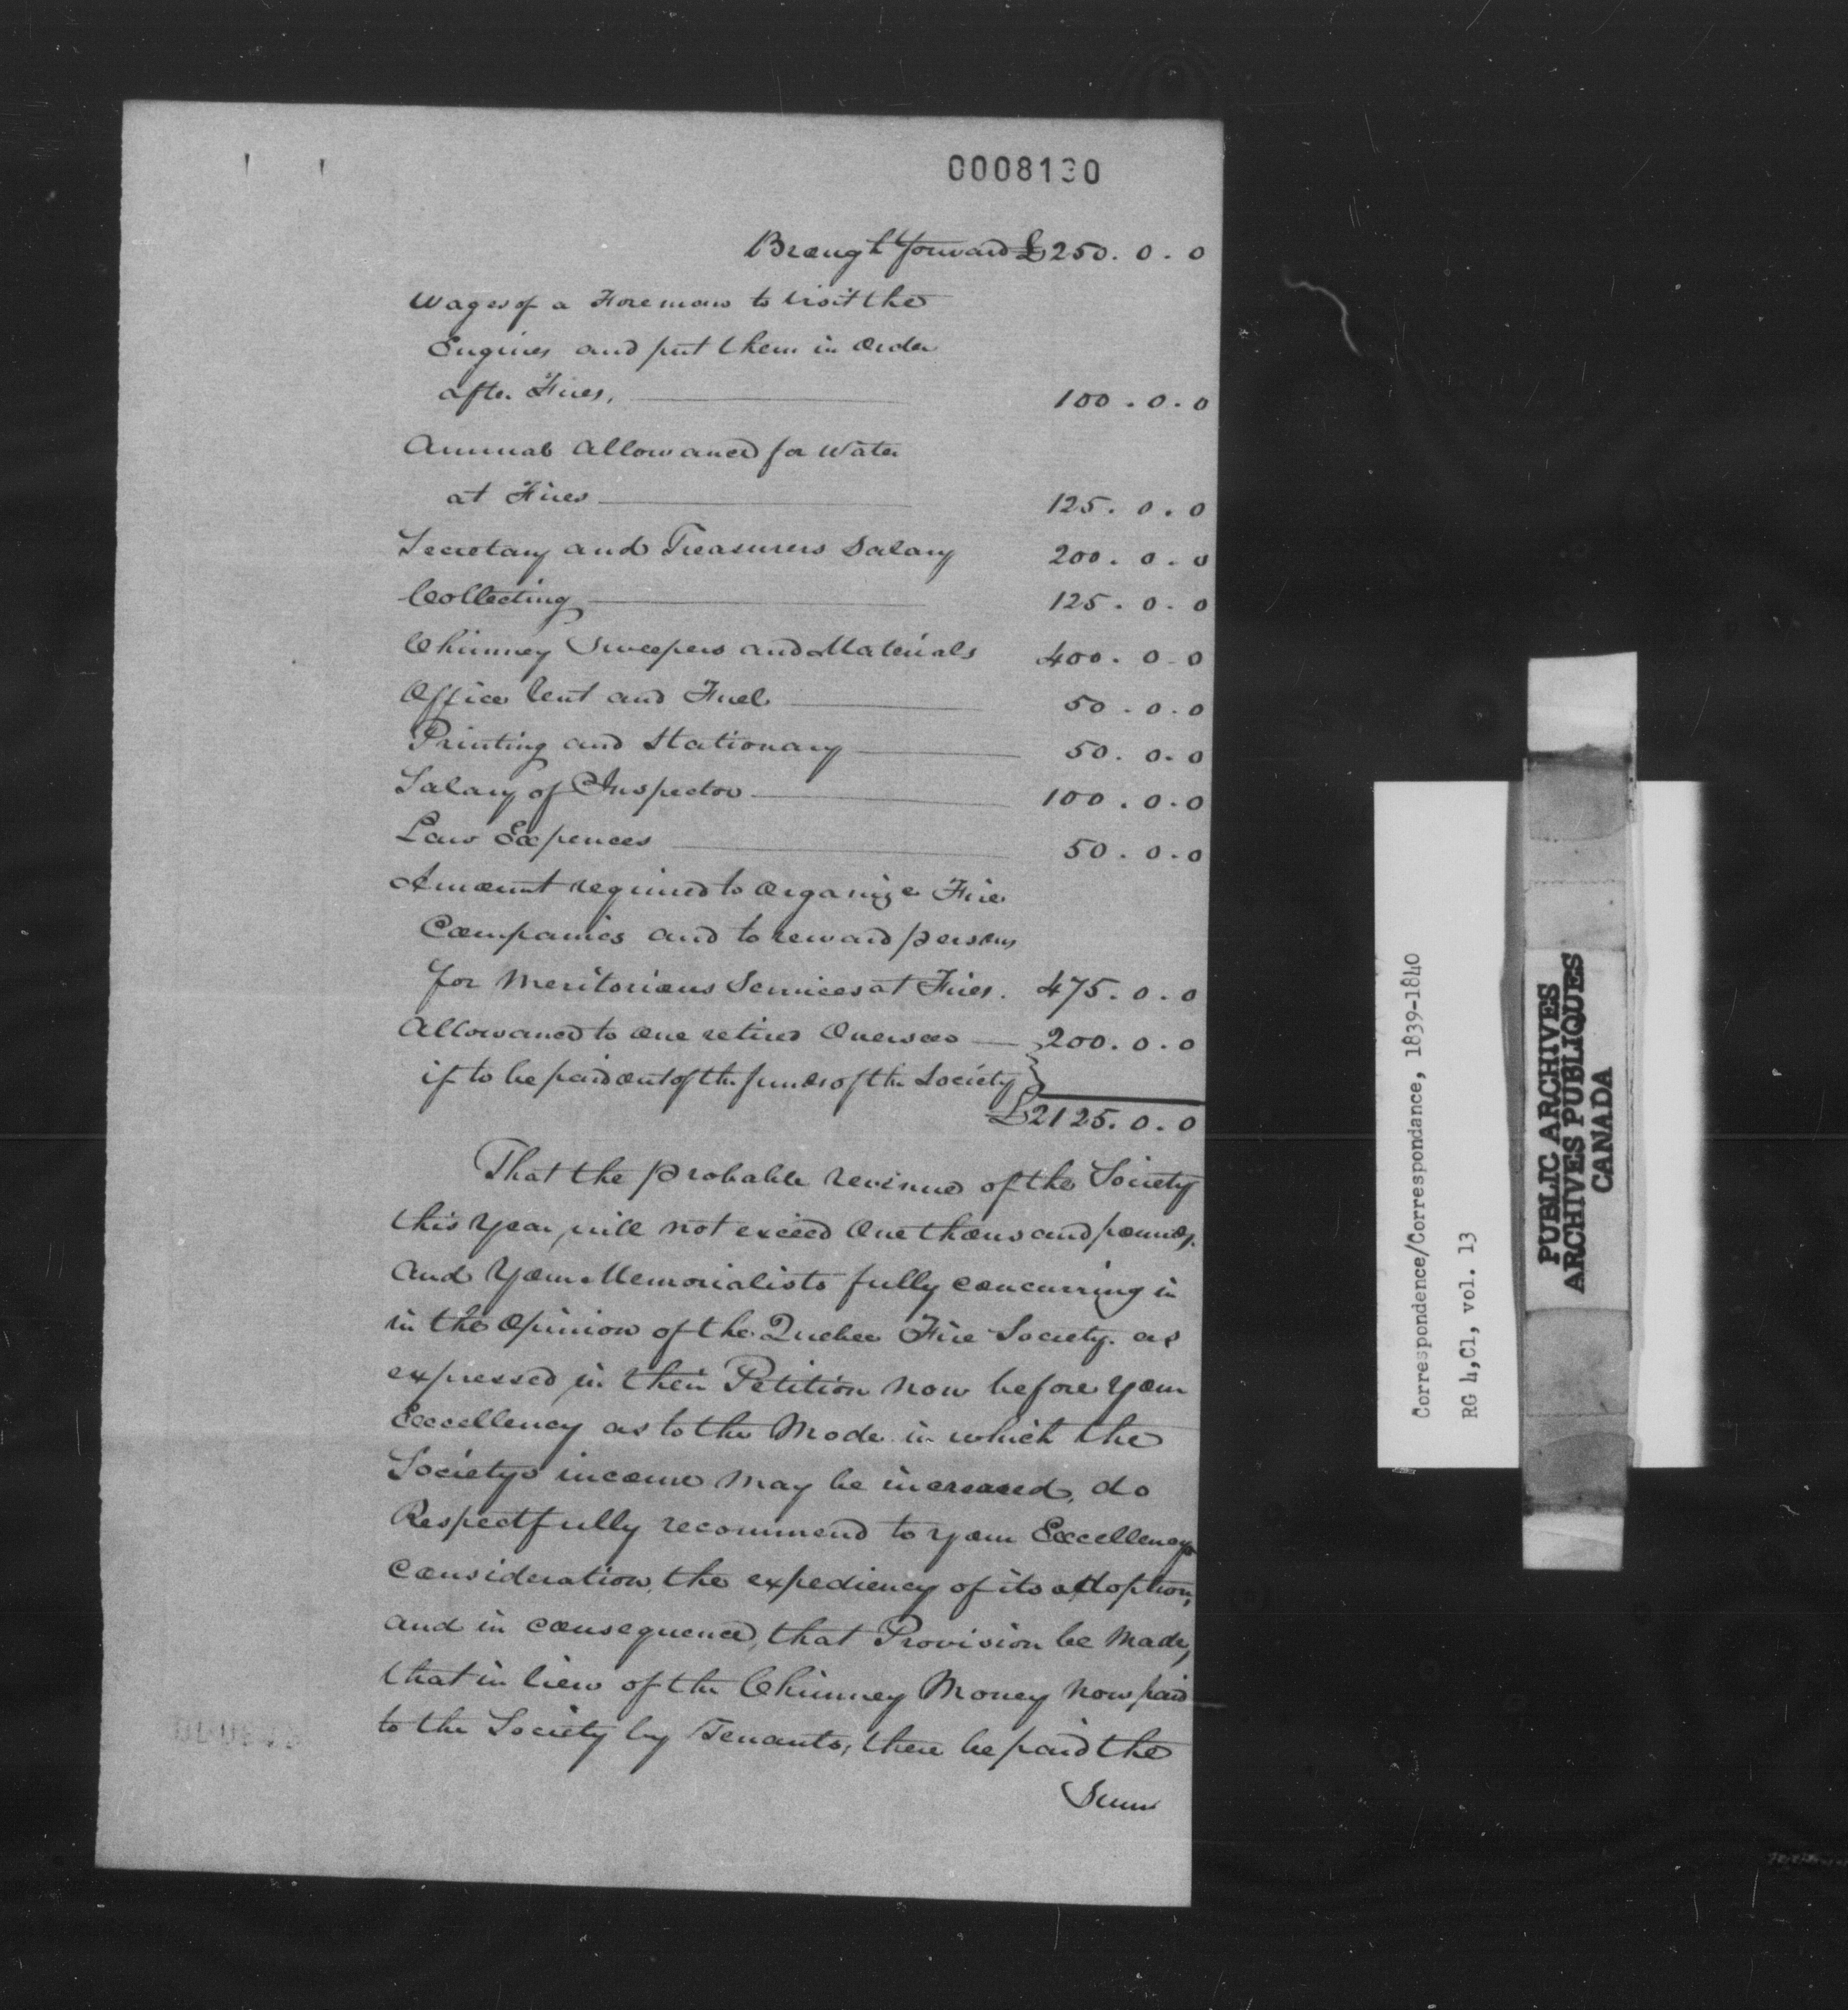 0008130
Brought forward £250. 0. 0
Wages of a Foreman to visit the
Engines and put them in Order
after Fires, 100. 0. 0
Annual Allowance for Water
at Fires 125. 0. 0
Secretary and Treasurers Salary 200. 0. 0
Collecting 125. 0. 0
Chimney Sweepers and Materials 400. 0. 0
Office Rent and Fuel 50. 0. 0
Printing and Stationary 50. 0. 0
Salary of Inspector 100. 0. 0
Law Expences 50. 0. 0
Amount required to Organize Fire
Companies and to reward persons
for Meritorious Services at Fires. 475. 0. 0
Allowance to one retired Overseer 200. 0. 0
if to be paid out of the funds of the Society
£2125. 0. 0
That the probable revenue of the Society
this Year, will not exceed One thousand pounds.
And Your Memorialists fully concurring in
in the Opinion of the Quebec Fire Society. as
expressed in their Petition now before Your
Excellency as to the Mode in which the
Societys income may be increased, do
Respectfully recommend to Your Excellencys
Consideration, the expediency of its adoption,
and in consequence, that Provision be Made,
that in lieu of the Chimney Money now paid
to the Society by Tenants, there be paid the
Sum
Correspondence/Correspondance, 1839-1840
RG 4,C1, vol. 13
PUBLIC ARCHIVES
ARCHIVES PUBLIQUES
CANADA